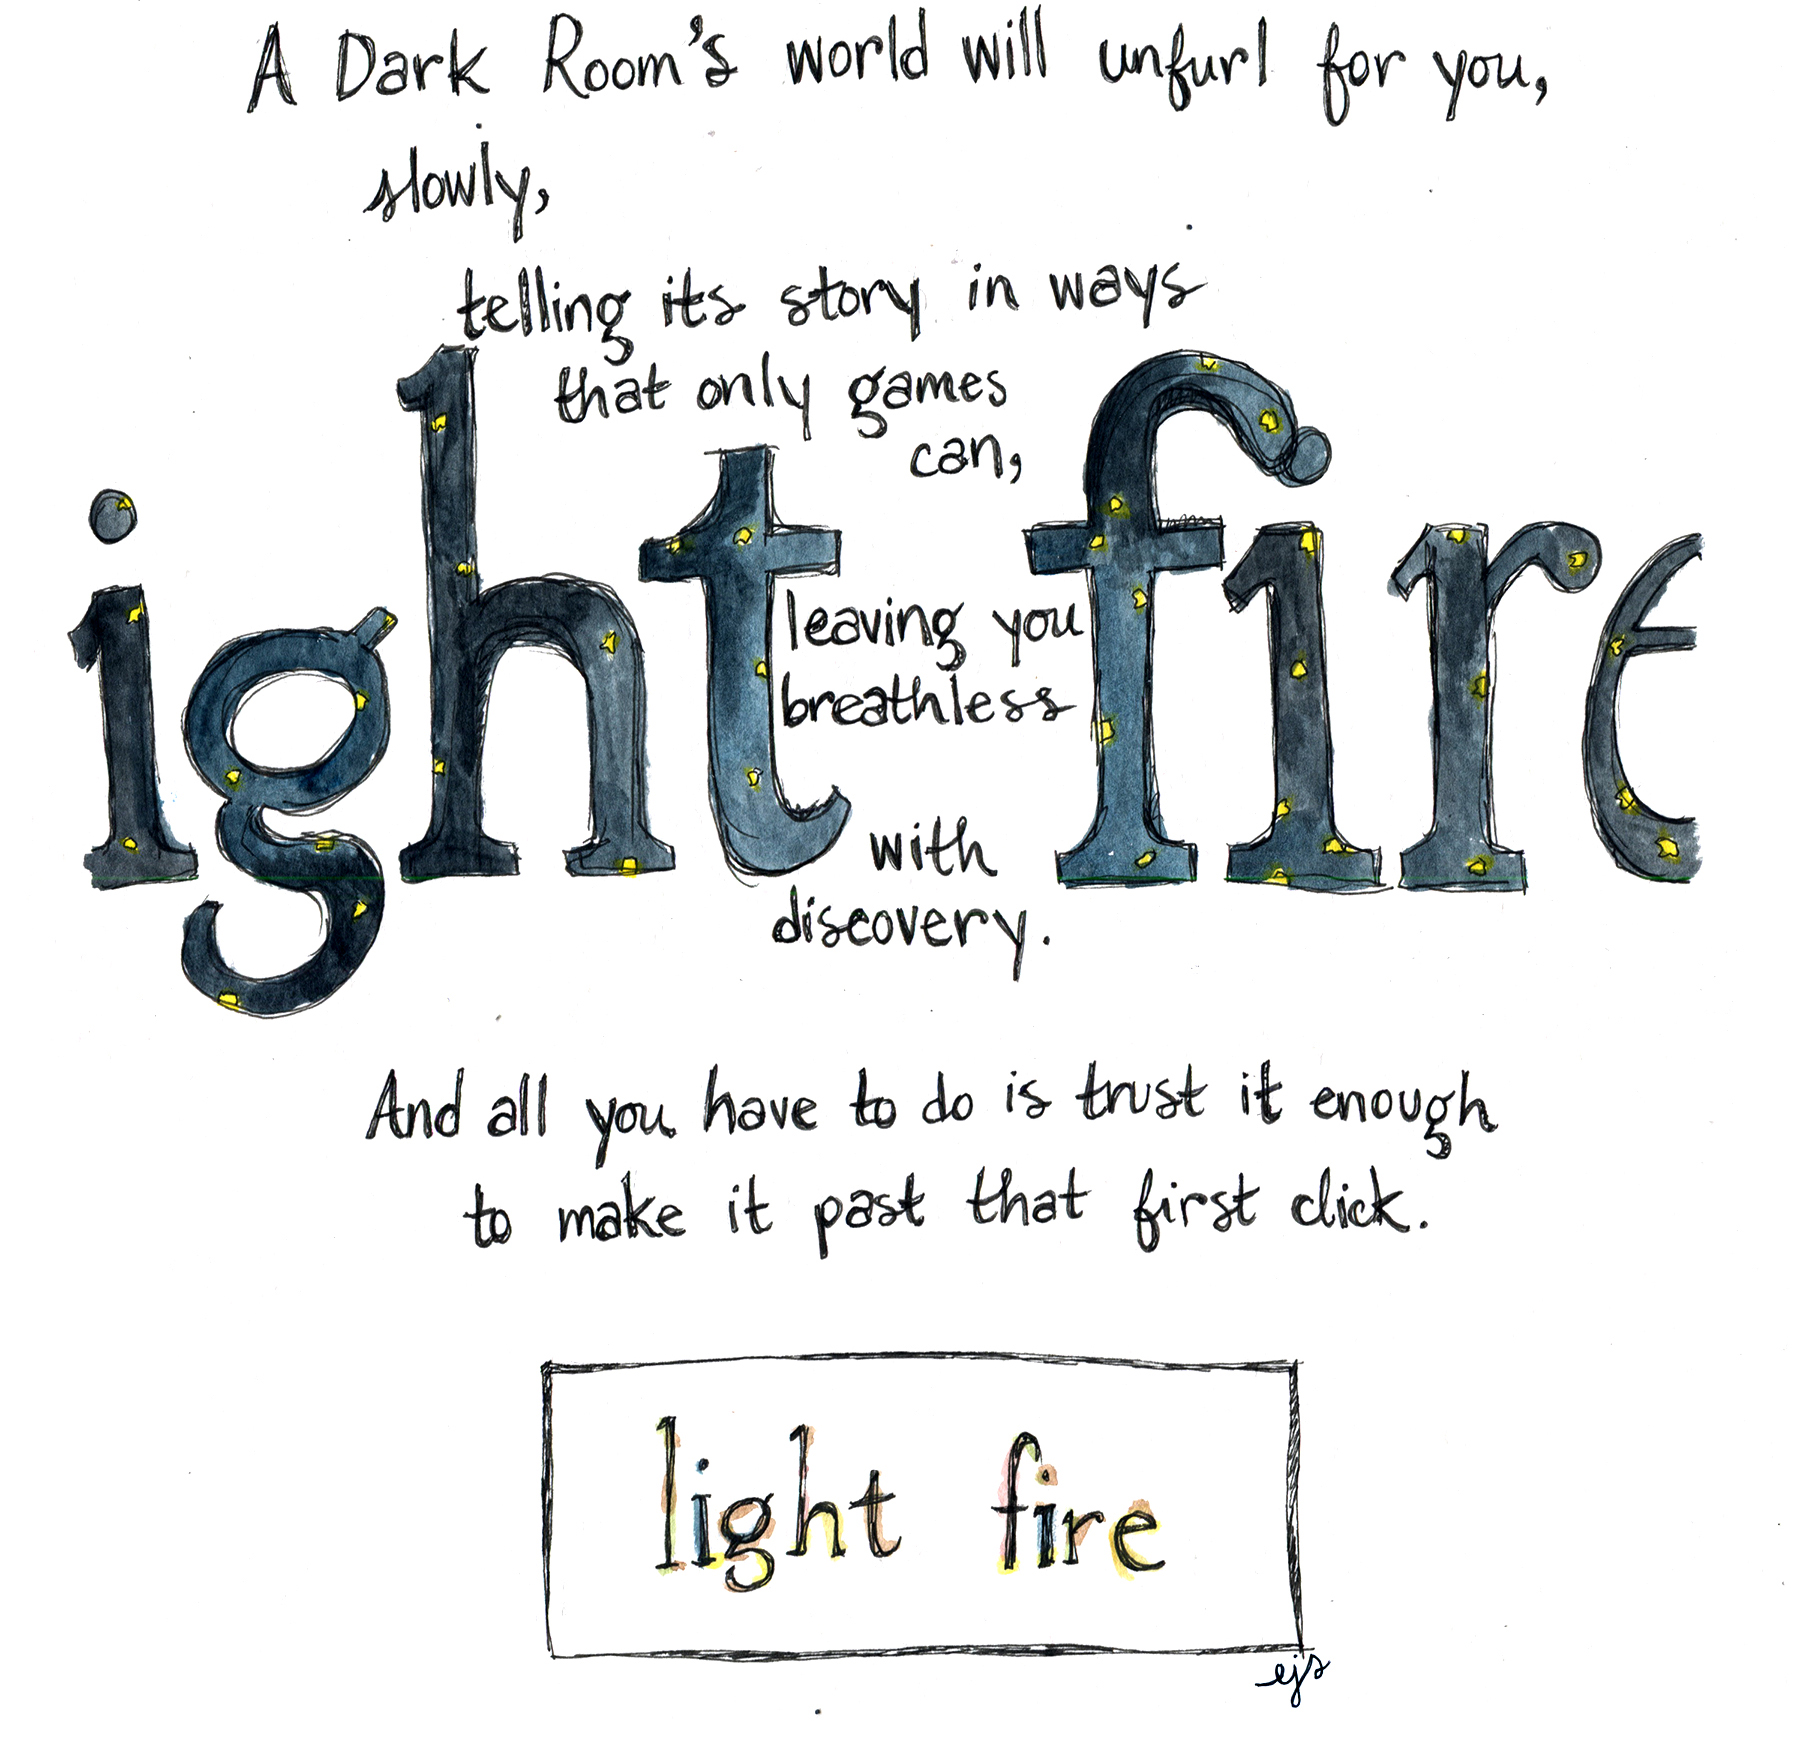 A Dark Room's world will unfurl for you,
slowly,
telling its story in ways
that only games
can,
ight fire
leaving you
breathless
with
discovery.
And all you have to do is trust it enough
to make it past that first click.
light fire
ejs